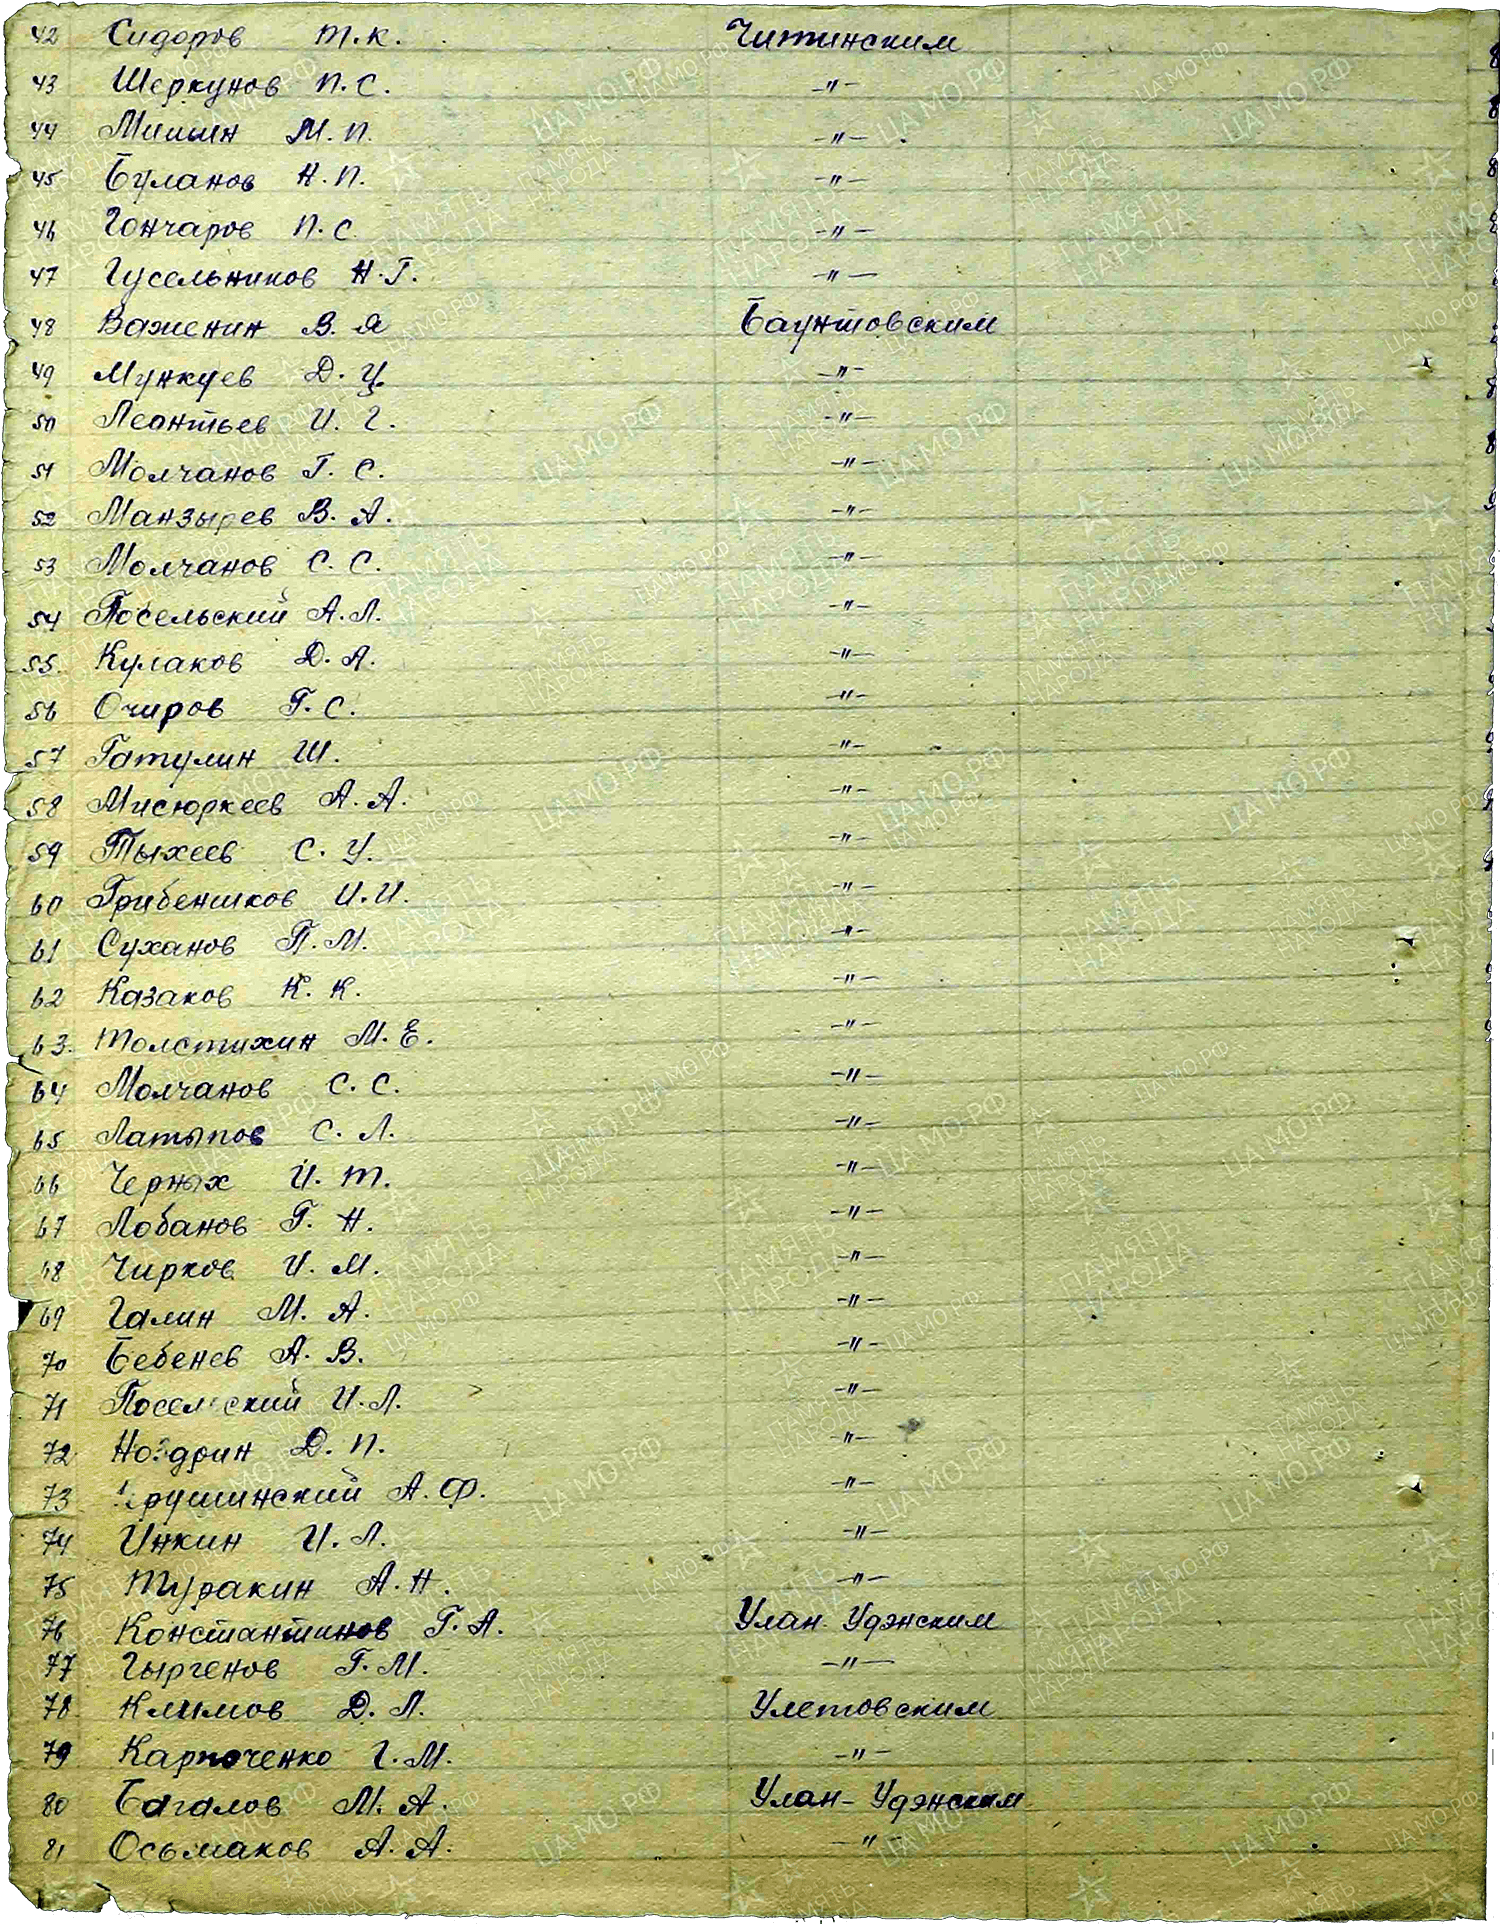 42 Сидоров Т.К. Читинским
43 Шеркунов П.С. -"-
44 Мишин М.П. -"-
45 Буланов Н.П. -"-
46 Гончаров П.С. -"-
47 Гусельников Н.Г. -"-
48 Важенин В.Я Баунтовским
49 Мункуев Д.Ц. -"-
50 Леонтьев И.Г. -"-
51 Молчанов Г.С. -"-
52 Манзырев В.А. -"-
53 Молчанов С.С. -"-
54 Посельский А.Л. -"-
55. Кулаков Д.А. -"-
56 Очиров Г.С. -"-
57 Гатулин Ш. -"-
58 Мисюркеев А.А. -"-
59 Тыхеев С.У. -"-
60 Грибеншков И.И. -"-
61 Суханов П.М. -"-
62 Казаков К.К. -"-
63. Толстихин М.Е. -"-
64 Молчанов С.С. -"-
65 Латыпов С.Л. -"-
66 Черных И.Т. -"-
67 Лобанов Г.Н. -"-
68 Чирков И.М. -"-
69 Галин М.А. -"-
70 Бебенев А.В. -"-
71 Посельский И.Л. -"-
72 Ноздрин Д.П. -"-
73 А.Ф. -"-
74 Инкин И.Л. -"-
75 Туракин А.Н. -"-
76 Константинов Г.А. Улан-Удэнским
77 Гыргенов Г.М. -"-
78 Климов Д.Л. Улетовским
79 Карпоченко Г.М. -"-
80 Багалов М.А. Улан-Удэнским
81 Осьмаков А.А. -"-